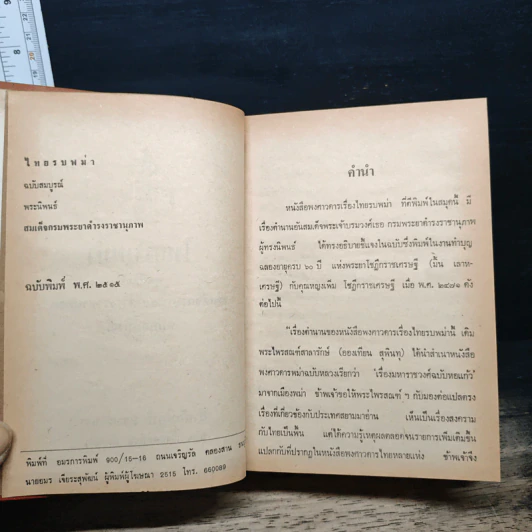 ไทยรบพม่า
ฉบับสมบูรณ์
พระนิพนธ์
สมเด็จกรมพระยาดำรงราชานุภาพ
ฉบับพิมพ์ พ.ศ. ๒๕๑๕
พิมพ์ที่ อมรการพิมพ์ 900/15-16 ถนนเจริญรัถ คลองสาน
นายอมร เจียรสุพัฒน์ ผู้พิมพ์ผู้โฆษณา 2515 โทร. 660089
คำนำ
หนังสือพงศาวดารเรื่องไทยรบพม่า ที่ตีพิมพ์ในสมุดนี้ มี
เรื่องตำนานอันสมเด็จพระเจ้าบรมวงศ์เธอ กรมพระยาดำรงราชานุภาพ
ผู้ทรงนิพนธ์ ได้ทรงอธิบายชี้แจงในฉบับซึ่งพิมพ์ในงานทำบุญ
ฉลองอายุครบ ๖๐ ปี แห่งพระยาโชฎึกราชเศรษฐี (มิ้น เลาห-
เศรษฐี) กับคุณหญิงเพิ่ม โชฎึกราชเศรษฐี เมื่อ พ.ศ. ๒๔๗๑ ดัง
ต่อไปนี้
"เรื่องตำนานของหนังสือพงศาวดารเรื่องไทยรบพม่านี้ เดิม
พระไพรสณฑ์สาลารักษ์ (ออลเทียน สุพินทุ) ได้นำสำเนาหนังสือ
พงศาวดารพม่าฉบับหลวงเรียกว่า "เรื่องมหาราชวงศ์ฉบับหอแก้ว"
มาจากเมืองพม่า ข้าพเจ้าขอให้พระไพรสณฑ์ ฯ กับมองต่อแปลตรง
เรื่องที่เกี่ยวข้องกับประเทศสยามมาอ่าน เห็นเป็นเรื่องสงคราม
กับไทยเป็นพื้น แต่ได้ความรู้เหตุผลตลอดจนรายการเพิ่มเติมขึ้น
แปลกกับที่ปรากฏในหนังสือพงศาวดารไทยหลายแห่ง ข้าพเจ้าจึง